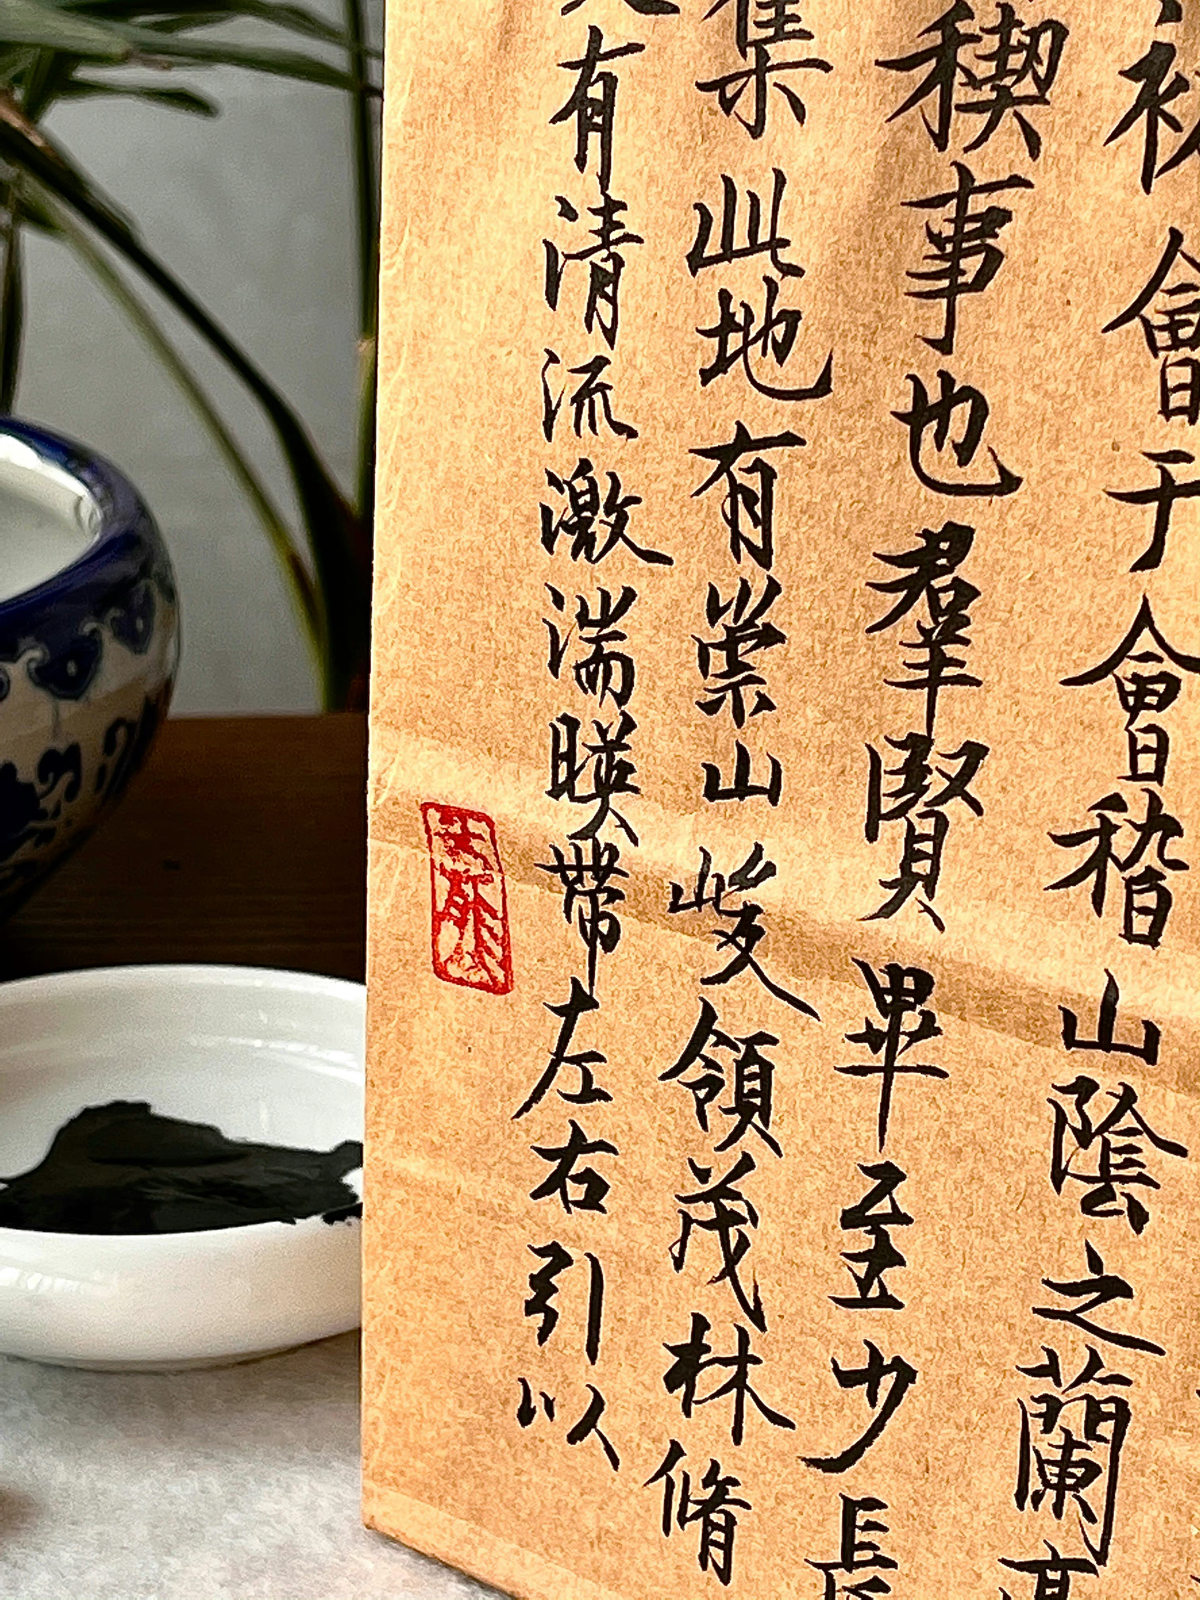 初會于會稽山陰之蘭亭
稧事也羣賢畢至少長
集此地有崇山峻領茂林脩
又有清流激湍暎帶左右引以